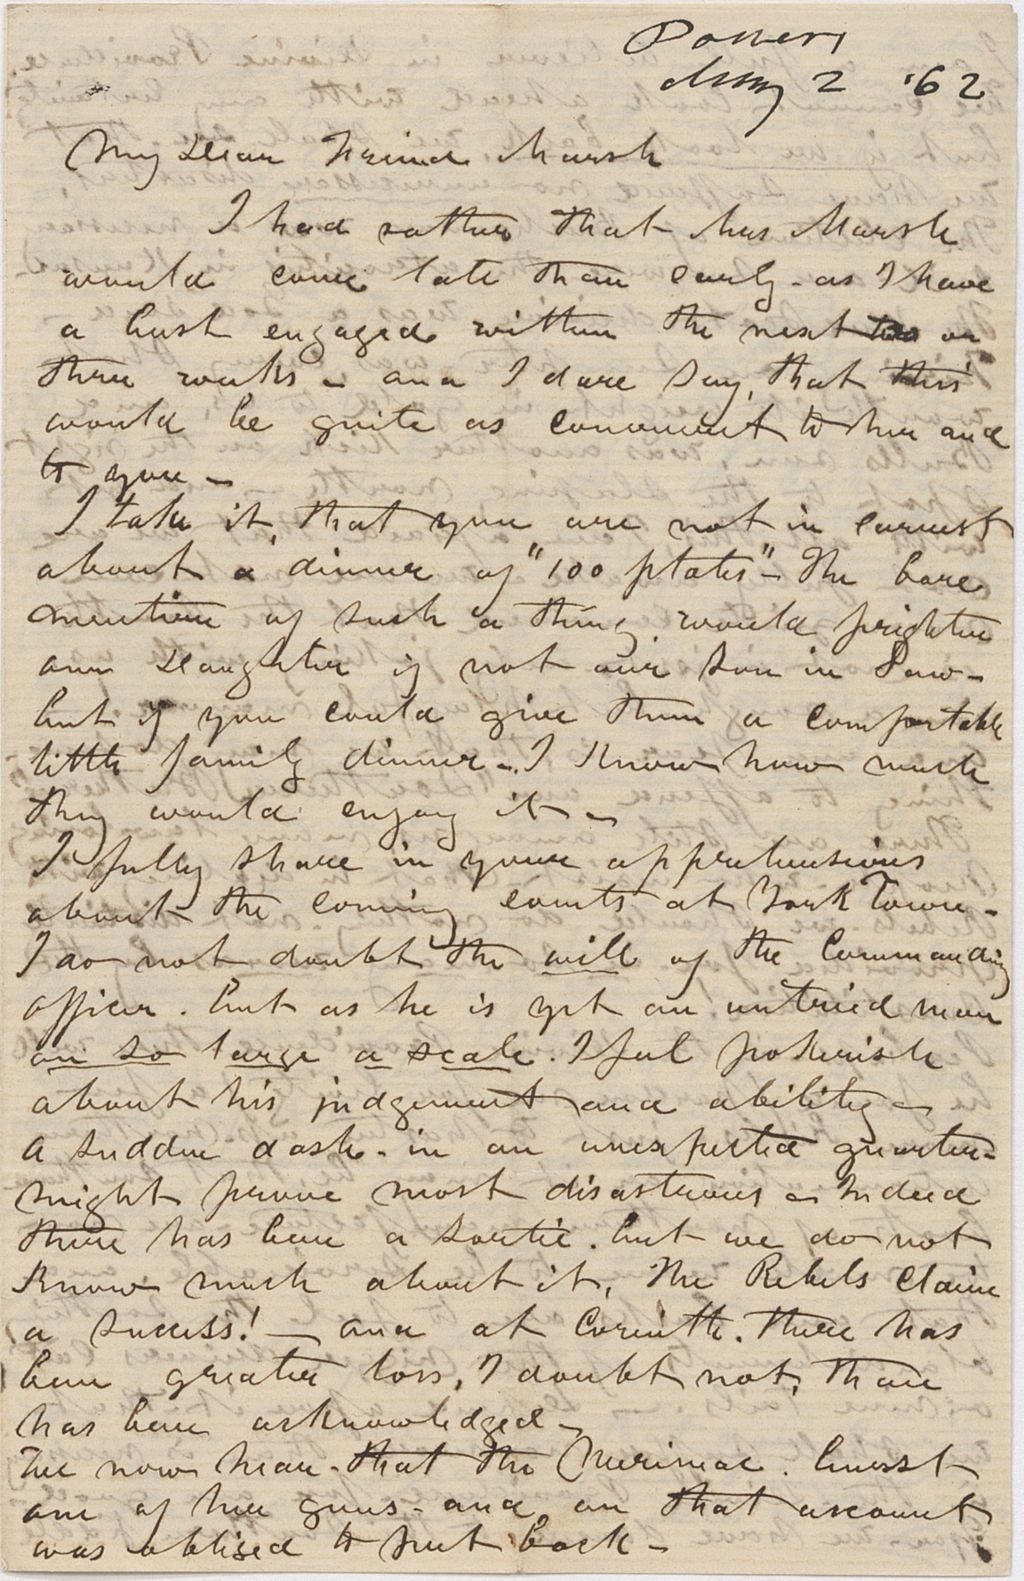 Powers
May 2 '62
My Dear Friend Marsh
I had rather that Mrs Marsh
would come late than early - as I have
a bust engaged within the next two or
three weeks - and I dare say, that this
would be quite as convenient to her and
to you -
I take it, that you are not in earnest
about a dinner of "100 plates" - The bare
mention of such a thing would frighten
our Daughter if not our Son in Law -
but if you could give them a comfortable
little family dinner - I know how much
they would enjoy it -
I fully share in your apprehensions
about the coming events at York Town -
I do not doubt the will of the Commanding
officer. But as he is yet an untried man
on so large a scale. I feel pokerish
about his judgement and ability -
A sudden dash - in an unexpected quarter -
might prove most disastrous - Indeed
there has been a sortie. but we do not
know much about it, The Rebels claim
a success! - and at Corinth. there has
been greater loss, I doubt not, than
has been acknowledged -
We now hear - that the Merimac. burst
one of her guns - and on that account
was obliged to put back -